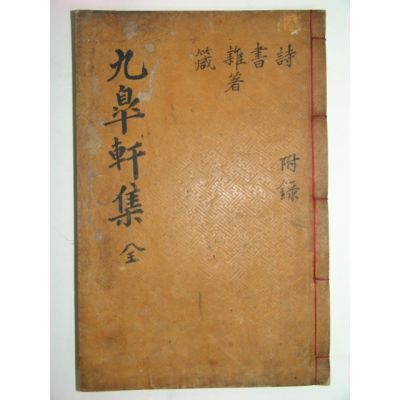 九皐軒集 全
詩
書
雜著
箴
附録